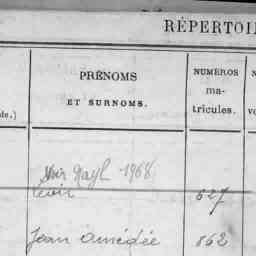 RÉPERTOI
PRÉNOMS
ET SURNOMS.
NUMÉROS
ma-
tricules.
N
de.)
vo
Voir 1968
627
Jean Amédée 862